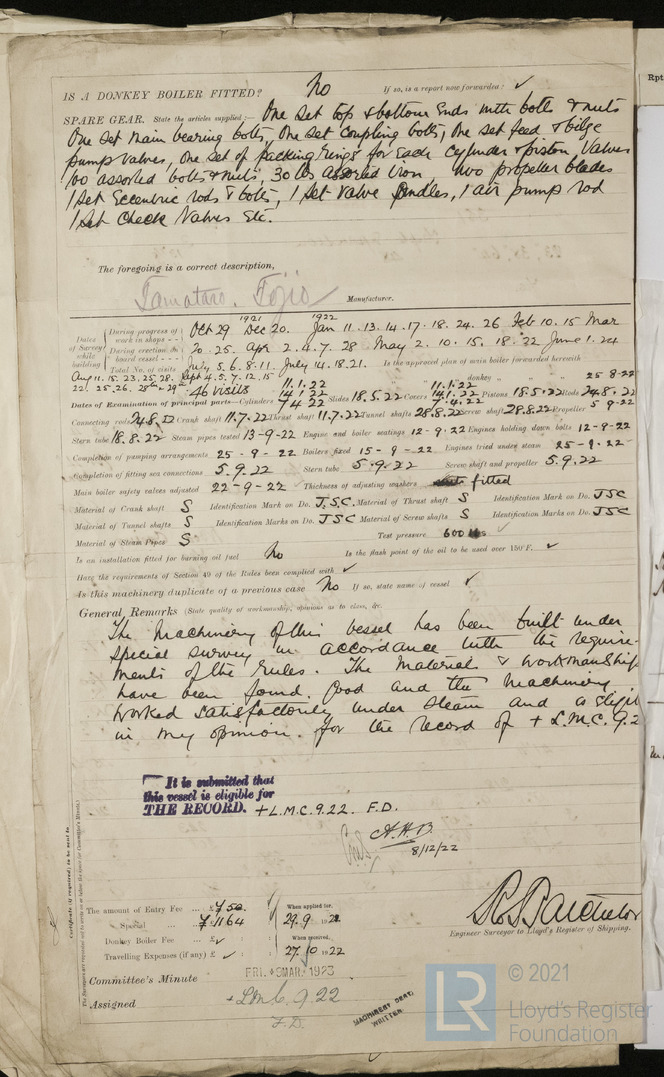 IS A DONKEY BOILER FITTED? No If so, is a report now forwarded: ✓
SPARE GEAR. State the articles supplied:— One set top & bottom ends with bolts & nuts
One set main bearing bolts, One set coupling bolts, One set feed & bilge
pump valves, One set of packing rings for each cylinder & piston valves
100 assorted bolts & nuts, 30 lbs assorted iron, two propeller blades
1 set Eccentric rods & bolts, 1 set valve spindles, 1 air pump rod
1 set check valves Etc.
The foregoing is a correct description,
Tamataro Tojio Manufacturer.
1921 1922
Dates of Survey while building
During progress of work in shops - - Oct 29 Dec 20. Jan 11. 13. 14. 17. 18. 24. 26 Feb 10. 15 Mar
During erection on board vessel - - - 20. 25. Apr 2. 4. 7. 28 May 2. 10. 15. 18. 22 June 1. 24
Total No. of visits July 5. 6. 8. 11. July 14. 18. 21. Is the approved plan of main boiler forwarded herewith
Aug 11. 15. 23. 25. 28. Sept 4. 5. 7. 12. 15 donkey " " "
22. 25. 26. 28 29 46 visits 11.1.22 11.1.22 25-8-22
Dates of Examination of principal parts—Cylinders 14.1.22 7.4.22 Slides 18.5.22 Covers 14.1.22 7.4.22 Pistons 18.5.22 Rods 24.8.22
Connecting rods 24.8.22 Crank shaft 11.7.22 Thrust shaft 11.7.22 Tunnel shafts 28.8.22 Screw shaft 28.8.22 Propeller 5-9-22
Stern tube 18.8.22 Steam pipes tested 13-9-22 Engine and boiler seatings 12-9-22 Engines holding down bolts 12-9-22
Completion of pumping arrangements 25-9-22 Boilers fixed 15-9-22 Engines tried under steam 25-9-22
Completion of fitting sea connections 5.9.22 Stern tube 5.9.22 Screw shaft and propeller 5.9.22
Main boiler safety valves adjusted 22-9-22 Thickness of adjusting washers fitted
Material of Crank shaft S Identification Mark on Do. J.S.C. Material of Thrust shaft S Identification Mark on Do. JSC
Material of Tunnel shafts S Identification Marks on Do. JSC Material of Screw shafts S Identification Marks on Do. JSC
Material of Steam Pipes S Test pressure 600 lbs ✓
Is an installation fitted for burning oil fuel No Is the flash point of the oil to be used over 150°F. ✓
Have the requirements of Section 49 of the Rules been complied with ✓
Is this machinery duplicate of a previous case No If so, state name of vessel ✓
General Remarks (State quality of workmanship, opinions as to class, &c.
The Machinery of this vessel has been built under
special survey in accordance with the require-
ments of the rules. The Material & workmanship
have been found. Good and the machinery
worked satisfactorily under steam and is eligi
in my opinion. for the record of + L.M.C. 9.2
It is submitted that
this vessel is eligible for
THE RECORD. + L.M.C. 9.22. F.D.
A.H.B.
8/12/22
Certificate (if required) to be sent to
The amount of Entry Fee ... £ 7 50. When applied for,
Special ... £ 1164 29.9.1922
Donkey Boiler Fee ... £ ✓ When received,
Travelling Expenses (if any) £ ✓ 27.10.1922
Engineer Surveyor to Lloyd's Register of Shipping.
Committee's Minute FRI. 9 MAR 1923
Assigned + L.M.C. 9.22
F.D.
MACHINERY CERT.
WRITTEN.
Rpt
LR © 2021
Lloyd's Register
Foundation